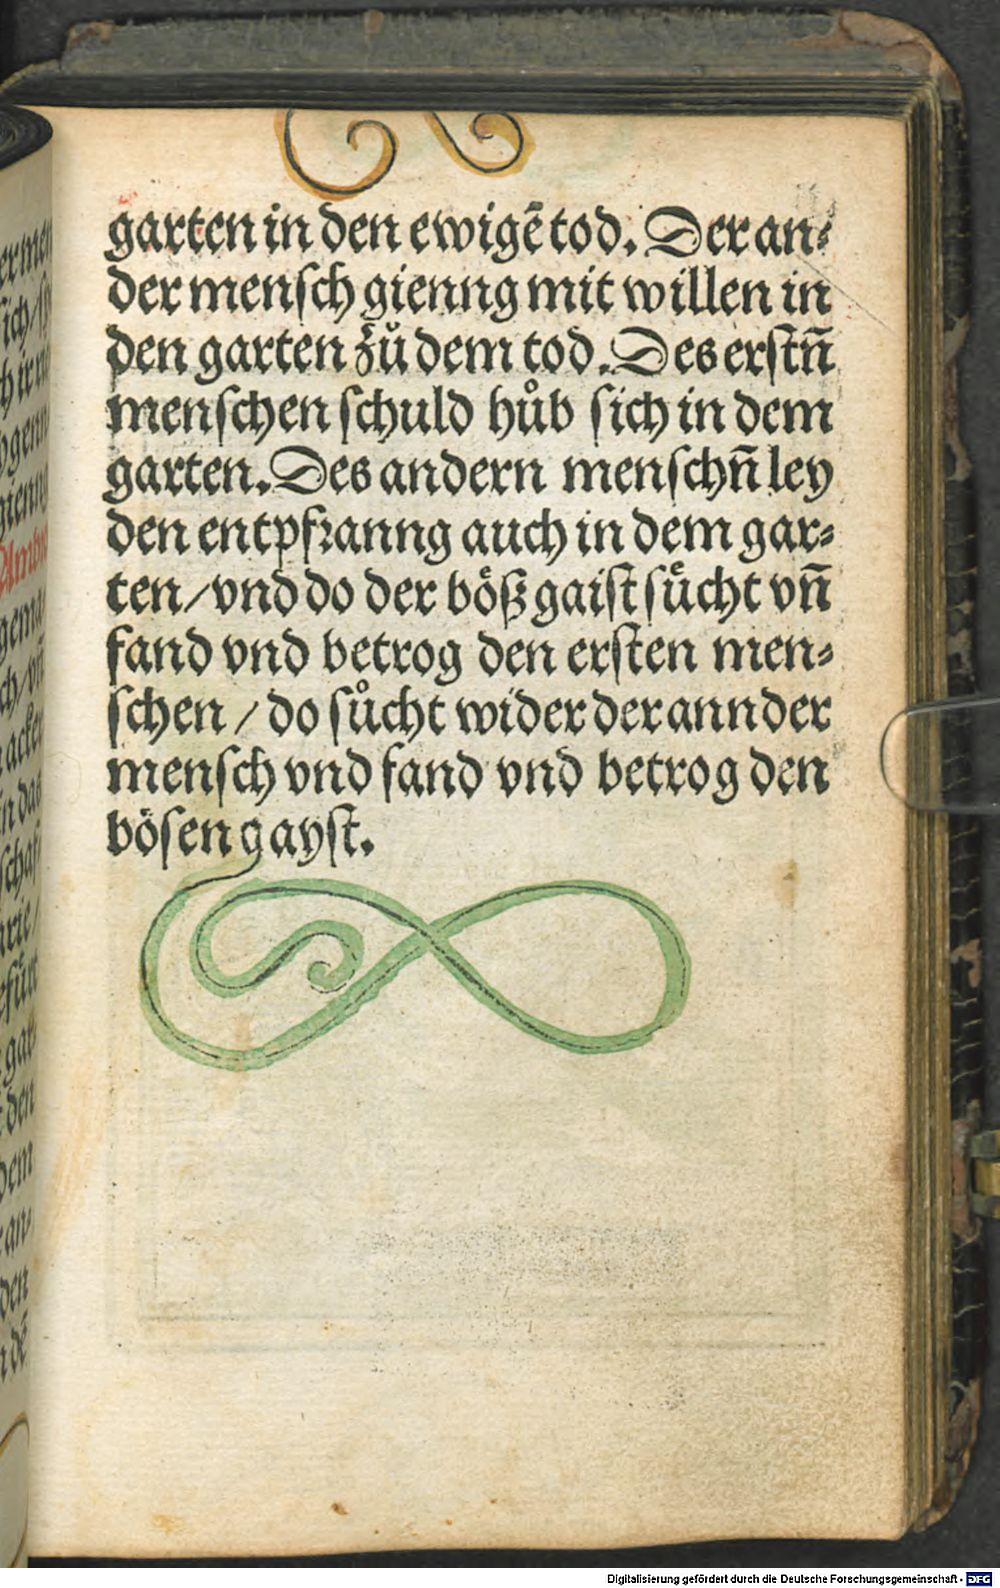 garten in den ewigē tod. Der an⸗
der mensch gienng mit willen in
den garten zů dem tod. Des erstn̄
menschen schuld hůb sich in dem
garten. Des andern menschn̄ ley
den entpfranng auch in dem gar⸗
ten / vnd do der böß gaist sůcht vn̄
fand vnd betrog den ersten men⸗
schen / do sůcht wider der annder
mensch vnd fand vnd betrog den
bösen gayst.
Digitalisierung gefördert durch die Deutsche Forschungsgemeinschaft - DFG